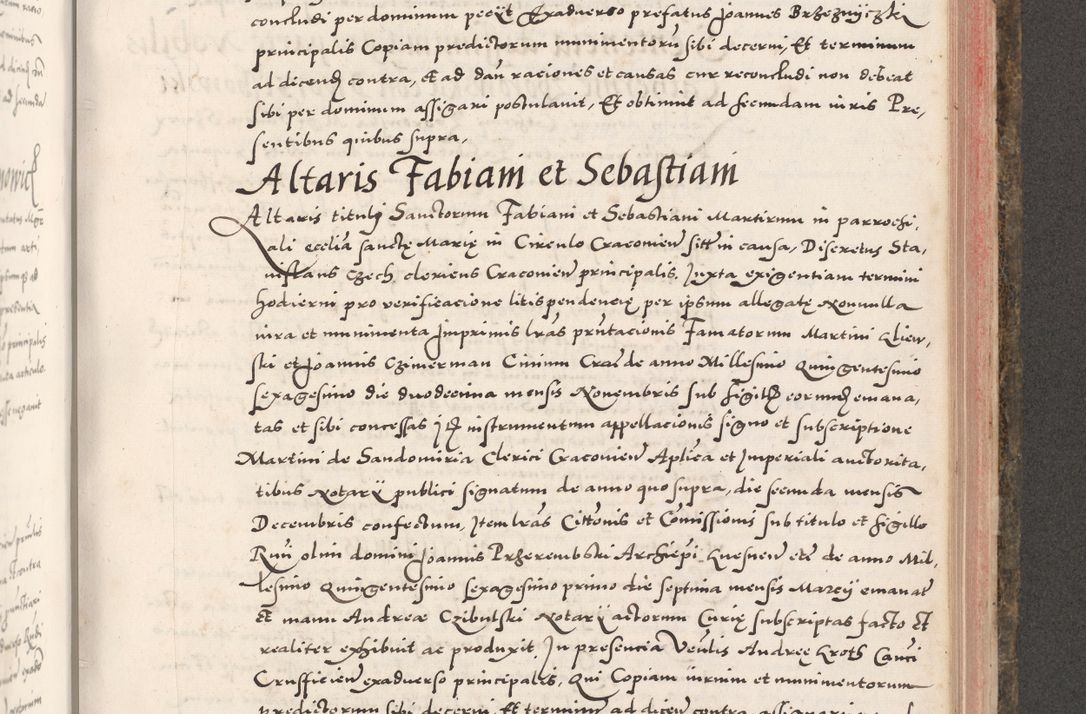 concludi per dominum peciit Exaduerso prefatus Joannes Brzezniczki
principalis Copiam predictorum munimentorū sibi decerni, Et terminum
ad dicend contra, et ad dan̄ raciones et causas cur reconcludi non debeat
sibi per dominum assigari postulauit, Et obtinuit ad secundam iuris Pre,
sentibus quibus supra,
Altaris Fabiani et Sebastiani
Altaris tituli Sanctorum Fabiani et Sebastiani Martirum in parrochi,
ali ecclīa sanctę Marię in Circulo Cracouien̄ siti in causa, Discretus Sta,
nislaus Czech clericus Cracouien̄ principalis, Juxta exigentiam termini
hodierni pro verificacione litispendencię per ipsum allegatę Nonnulla
iura et munimenta Inprimis lr̄as prn̄tacionis Famatorum Martini
ski et Joannis Czimerman Ciuium Cra de anno Millesimo Quingentesimo
sexagesimo die duodecima mensis Nouembris sub sigill eorund emana,
tas et sibi concessas It instrumentum appellacionis signo et subscriptione
Martini de Sandomiria Clerici Cracouien̄ Aplīca et Imperiali auctorita,
tibus Notarÿ publici signatum de anno quo supra, die secunda mensis
Decembris confectum, Item lr̄as Citt̄onis et Com̄issionis sub titulo et sigillo
Rn̄i olim domini Joannis Przerembski Archiepī Gnesnen̄ etc̄ de anno Mil,
lesimo Quingentesimo sexagesimo primo die septima mensis Marcÿ emanat
et manu Andreae Czibulski Notarÿ actorum Curię subscriptas facto et
realiter exhibuit ac produxit, In presencia Ven̄lis Andreę Groth Canci
Crusficien̄ exaduerso principalis, Qui Copiam iurium et munimentorum
predictorum sibi decerni, Et terminum ad dicen̄ contra